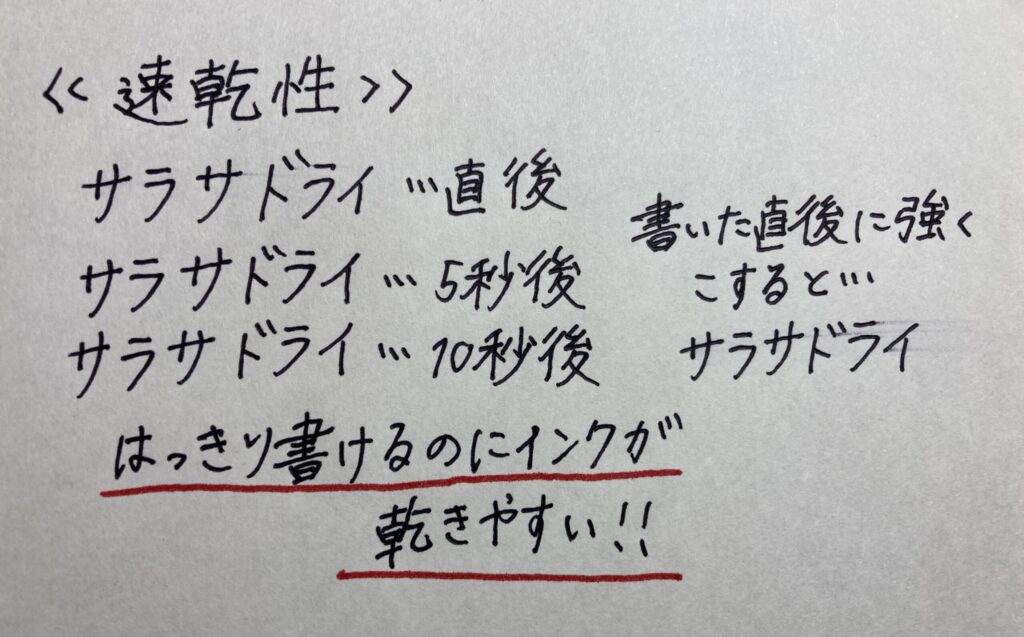 <<速乾性>>
サラサドライ…直後
サラサドライ…5秒後
サラサドライ…10秒後
書いた直後に強く
こすると…
サラサドライ
はっきり書けるのにインクが
乾きやすい!!